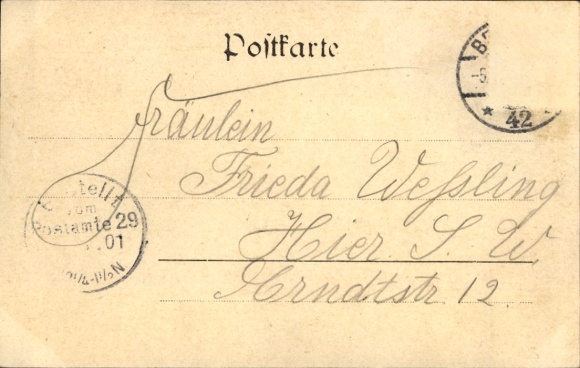 Postkarte
42
Fräulein
Frieda Weßling
Hier S. W
Arndtstr. 12.
vom
Postamte 29
01